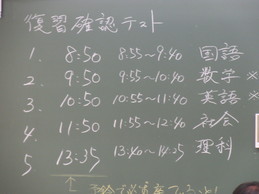 復習確認テスト
1. 8:50 8:55~9:40 国語
2. 9:50 9:55~10:40 数学 ※
3. 10:50 10:55~11:40 英語 ※
4. 11:50 11:55~12:40 社会
5 13:35 13:40~14:25 理科
↑